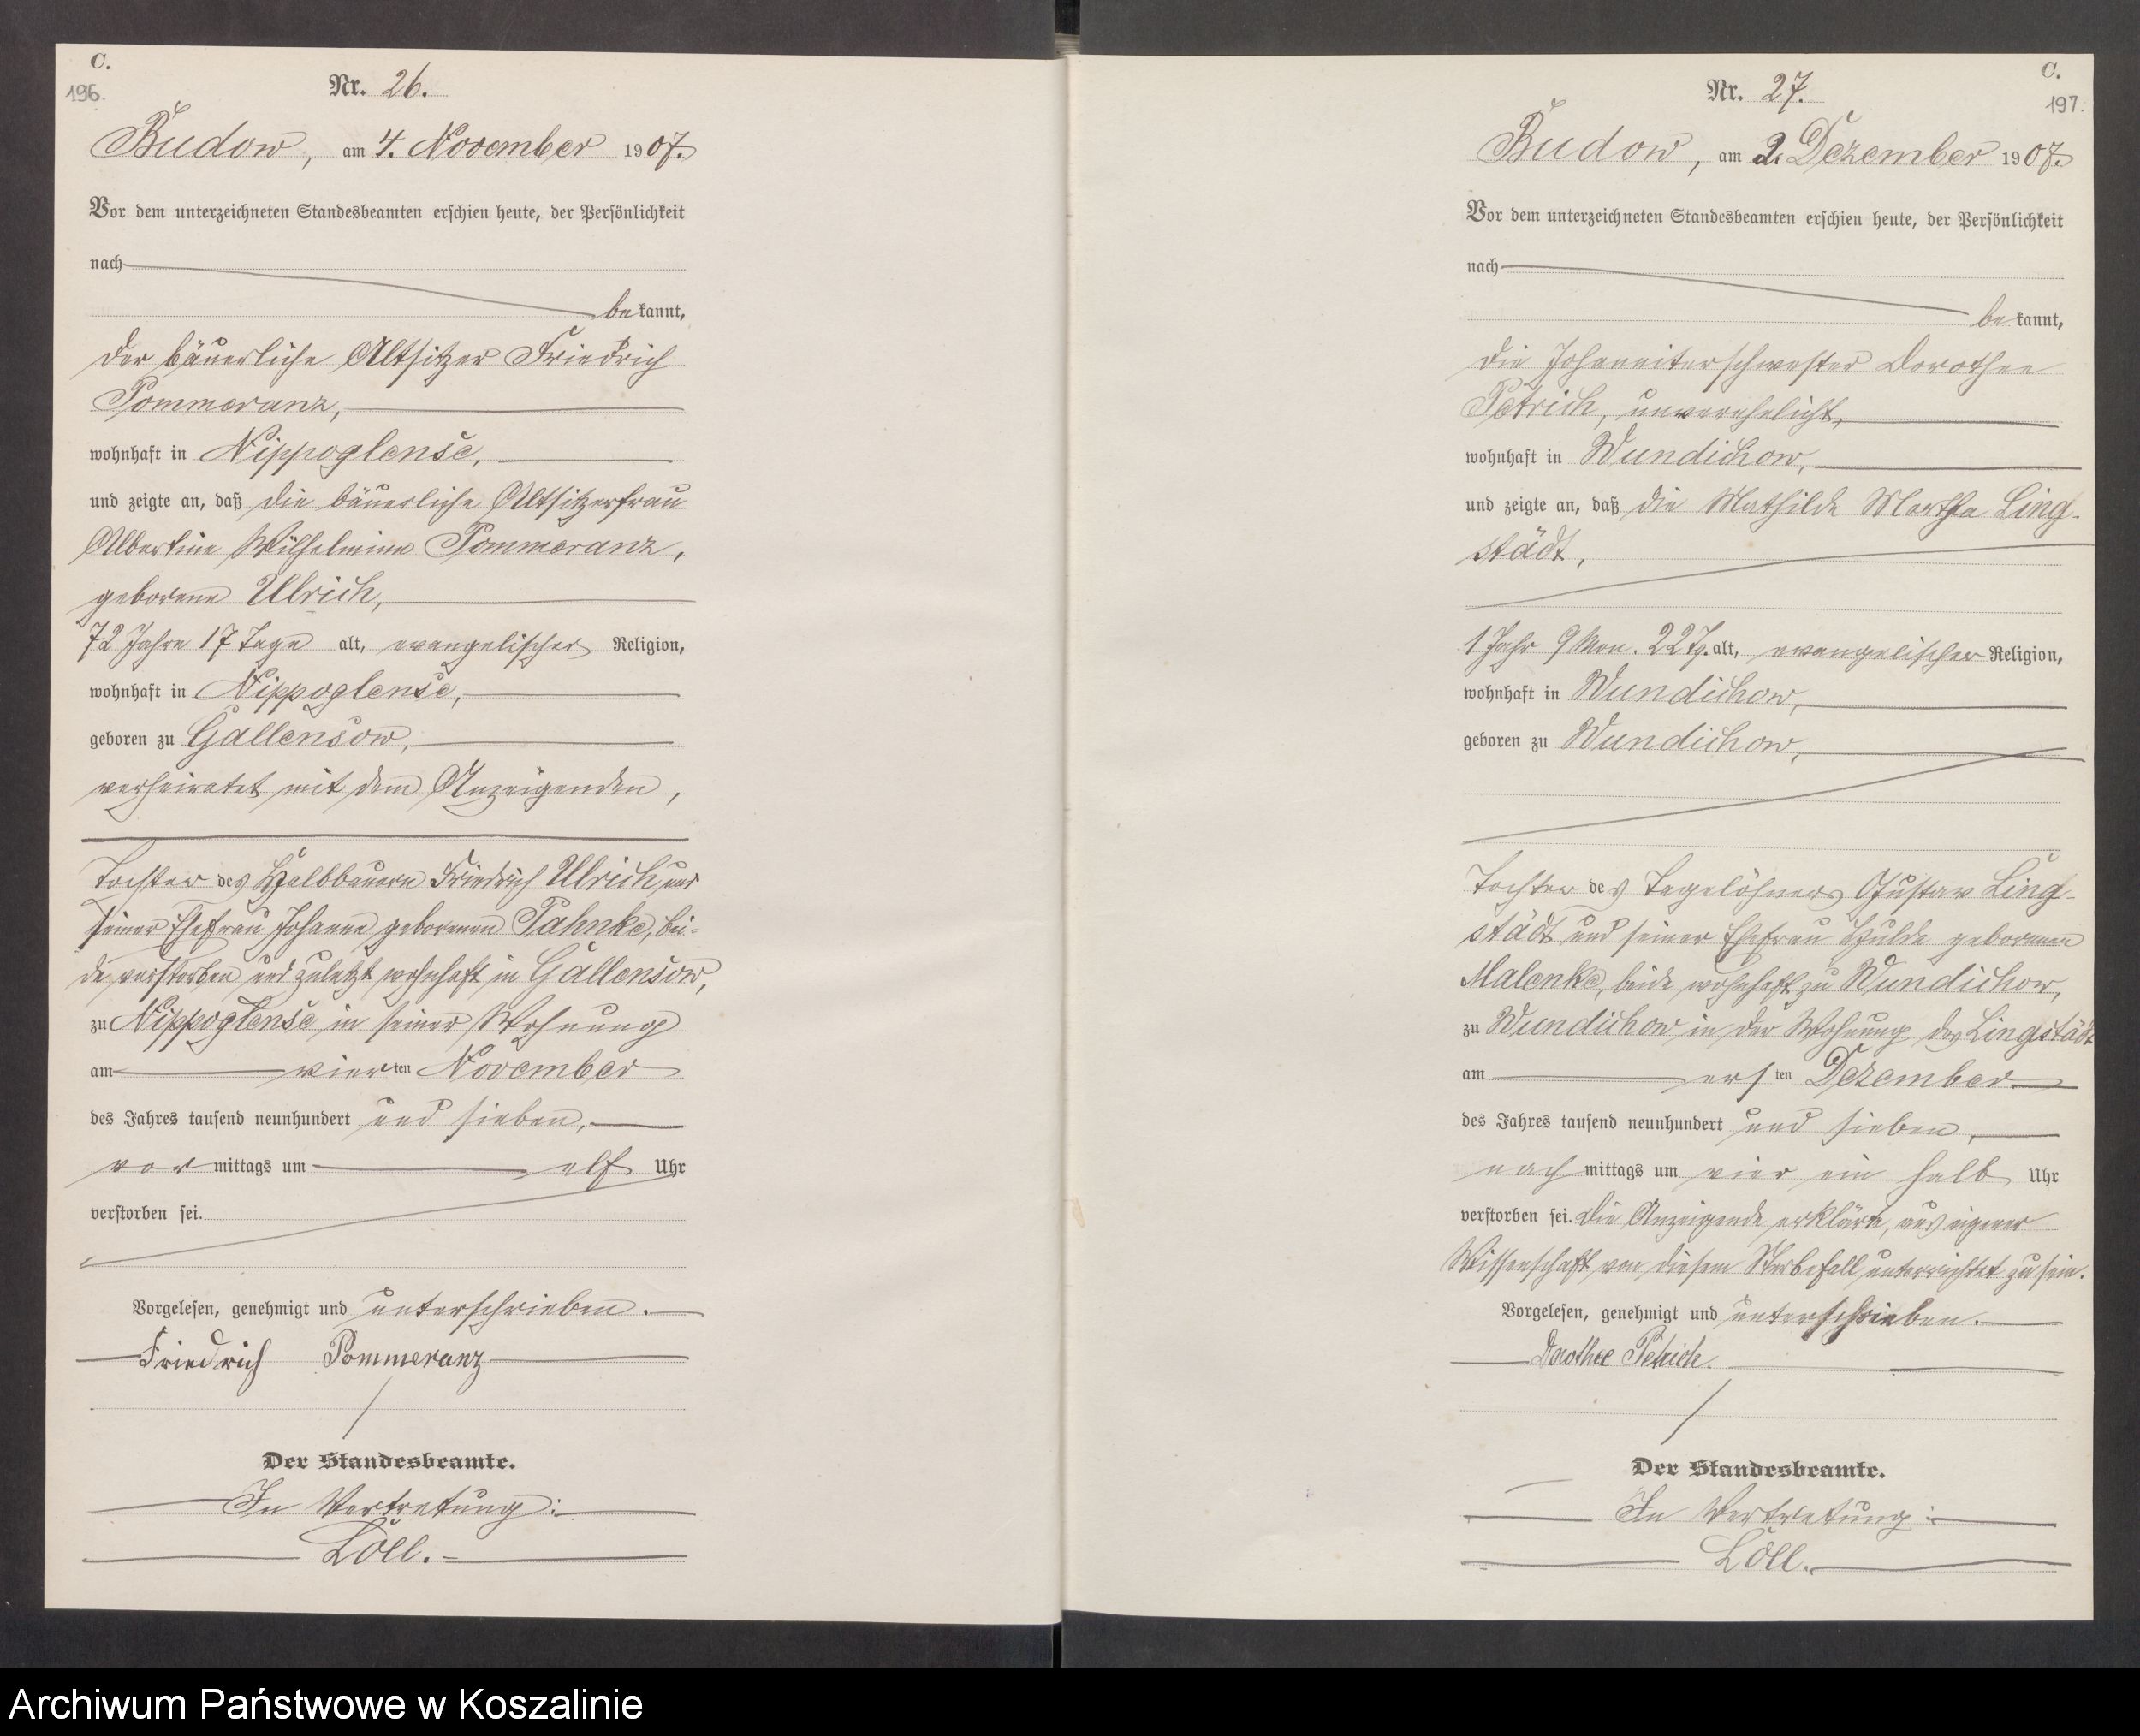 C.
196.
Nr. 26.
Budow, am 4. November 1907.
Vor dem unterzeichneten Standesbeamten erschien heute, der Persönlichkeit
nach
bekannt,
der bäuerliche Altsitzer Friedrich
Pommeranz,
wohnhaft in Nippoglense,
und zeigte an, daß die bäuerliche Altsitzerfrau
Albertine Wilhelmine Pommeranz,
geborene Ulrich,
72 Jahre 17 Tage alt, evangelischer Religion,
wohnhaft in Nippoglense,
geboren zu Gallensow,
verheiratet mit dem Anzeigenden,
Tochter des Halbbauern Friedrich Ulrich und
seiner Ehefrau Johanne geborenen Pahnke, bei-
de verstorben und zuletzt wohnhaft in Gallensow,
zu Nippoglense in seiner Wohnung
am vierten November
des Jahres tausend neunhundert und sieben,
vor mittags um elf Uhr
verstorben sei.
Vorgelesen, genehmigt und unterschrieben.
Friedrich Pommeranz
Der Standesbeamte.
In Vertretung:
Löll.
C.
197.
Nr. 27.
Budow, am 2. Dezember 1907.
Vor dem unterzeichneten Standesbeamten erschien heute, der Persönlichkeit
nach
bekannt,
die Johanniterschwester Dorothee
Petrich, unverehelicht,
wohnhaft in Wundichow,
und zeigte an, daß die Mathilde Martha Ling-
städt,
1 Jahr 9 Mon. 22 Tg. alt, evangelischer Religion,
wohnhaft in Wundichow,
geboren zu Wundichow,
Tochter des Tagelöhners Gustav Ling-
städt und seiner Ehefrau Hulda geborenen
Malenke, beide wohnhaft zu Wundichow,
zu Wundichow in der Wohnung des Lingstädt
am ersten Dezember
des Jahres tausend neunhundert und sieben,
nach mittags um vier ein halb Uhr
verstorben sei. Die Anzeigende erklärte, aus eigener
Wissenschaft von diesem Sterbefall unterrichtet zu sein.
Vorgelesen, genehmigt und unterschrieben.
Dorothee Petrich.
Der Standesbeamte.
In Vertretung:
Löll.
Archiwum Państwowe w Koszalinie